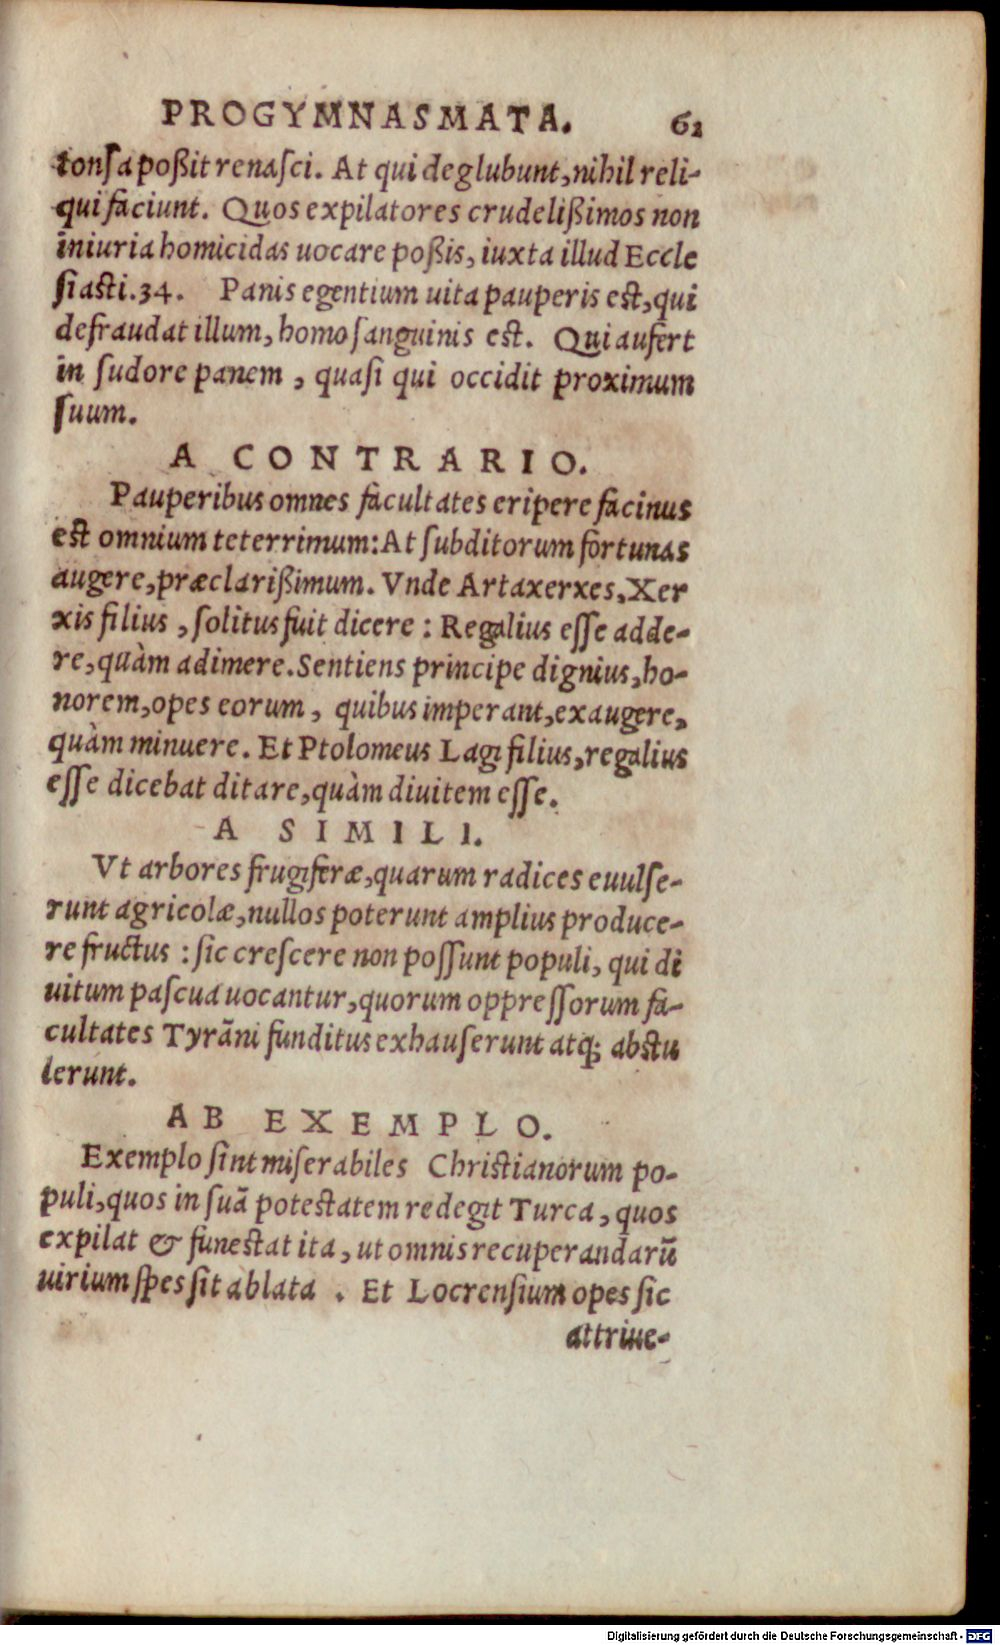 PROGYMNASMATA. 62
tonsa poßit renasci. At qui deglubunt, nihil reli-
qui faciunt. Quos expilatores crudelißimos non
iniuria homicidas uocare poßis, iuxta illud Eccle
siasti.34. Panis egentium uita pauperis est, qui
defraudat illum, homo sanguinis est. Qui aufert
in sudore panem, quasi qui occidit proximum
suum.
A CONTRARIO.
Pauperibus omnes facultates eripere facinus
est omnium teterrimum: At subditorum fortunas
augere, præclarißimum. Vnde Artaxerxes, Xer
xis filius, solitus fuit dicere: Regalius esse adde-
re, quàm adimere. Sentiens principe dignius, ho-
norem, opes eorum, quibus imperant, exaugere,
quàm minuere. Et Ptolomeus Lagi filius, regalius
esse dicebat ditare, quàm diuitem esse.
A SIMILI.
Vt arbores frugiferæ, quarum radices euulse-
runt agricolæ, nullos poterunt amplius produce-
re fructus: sic crescere non possunt populi, qui di
uitum pascua uocantur, quorum oppressorum fa-
cultates Tyrãni funditus exhauserunt atq; abstu
lerunt.
AB EXEMPLO.
Exemplo sint miserabiles Christianorum po-
puli, quos in suã potestatem redegit Turca, quos
expilat & funestat ita, ut omnis recuperandarũ
uirium spes sit ablata. Et Locrensium opes sic
attriue-
Digitalisierung gefördert durch die Deutsche Forschungsgemeinschaft - DFG